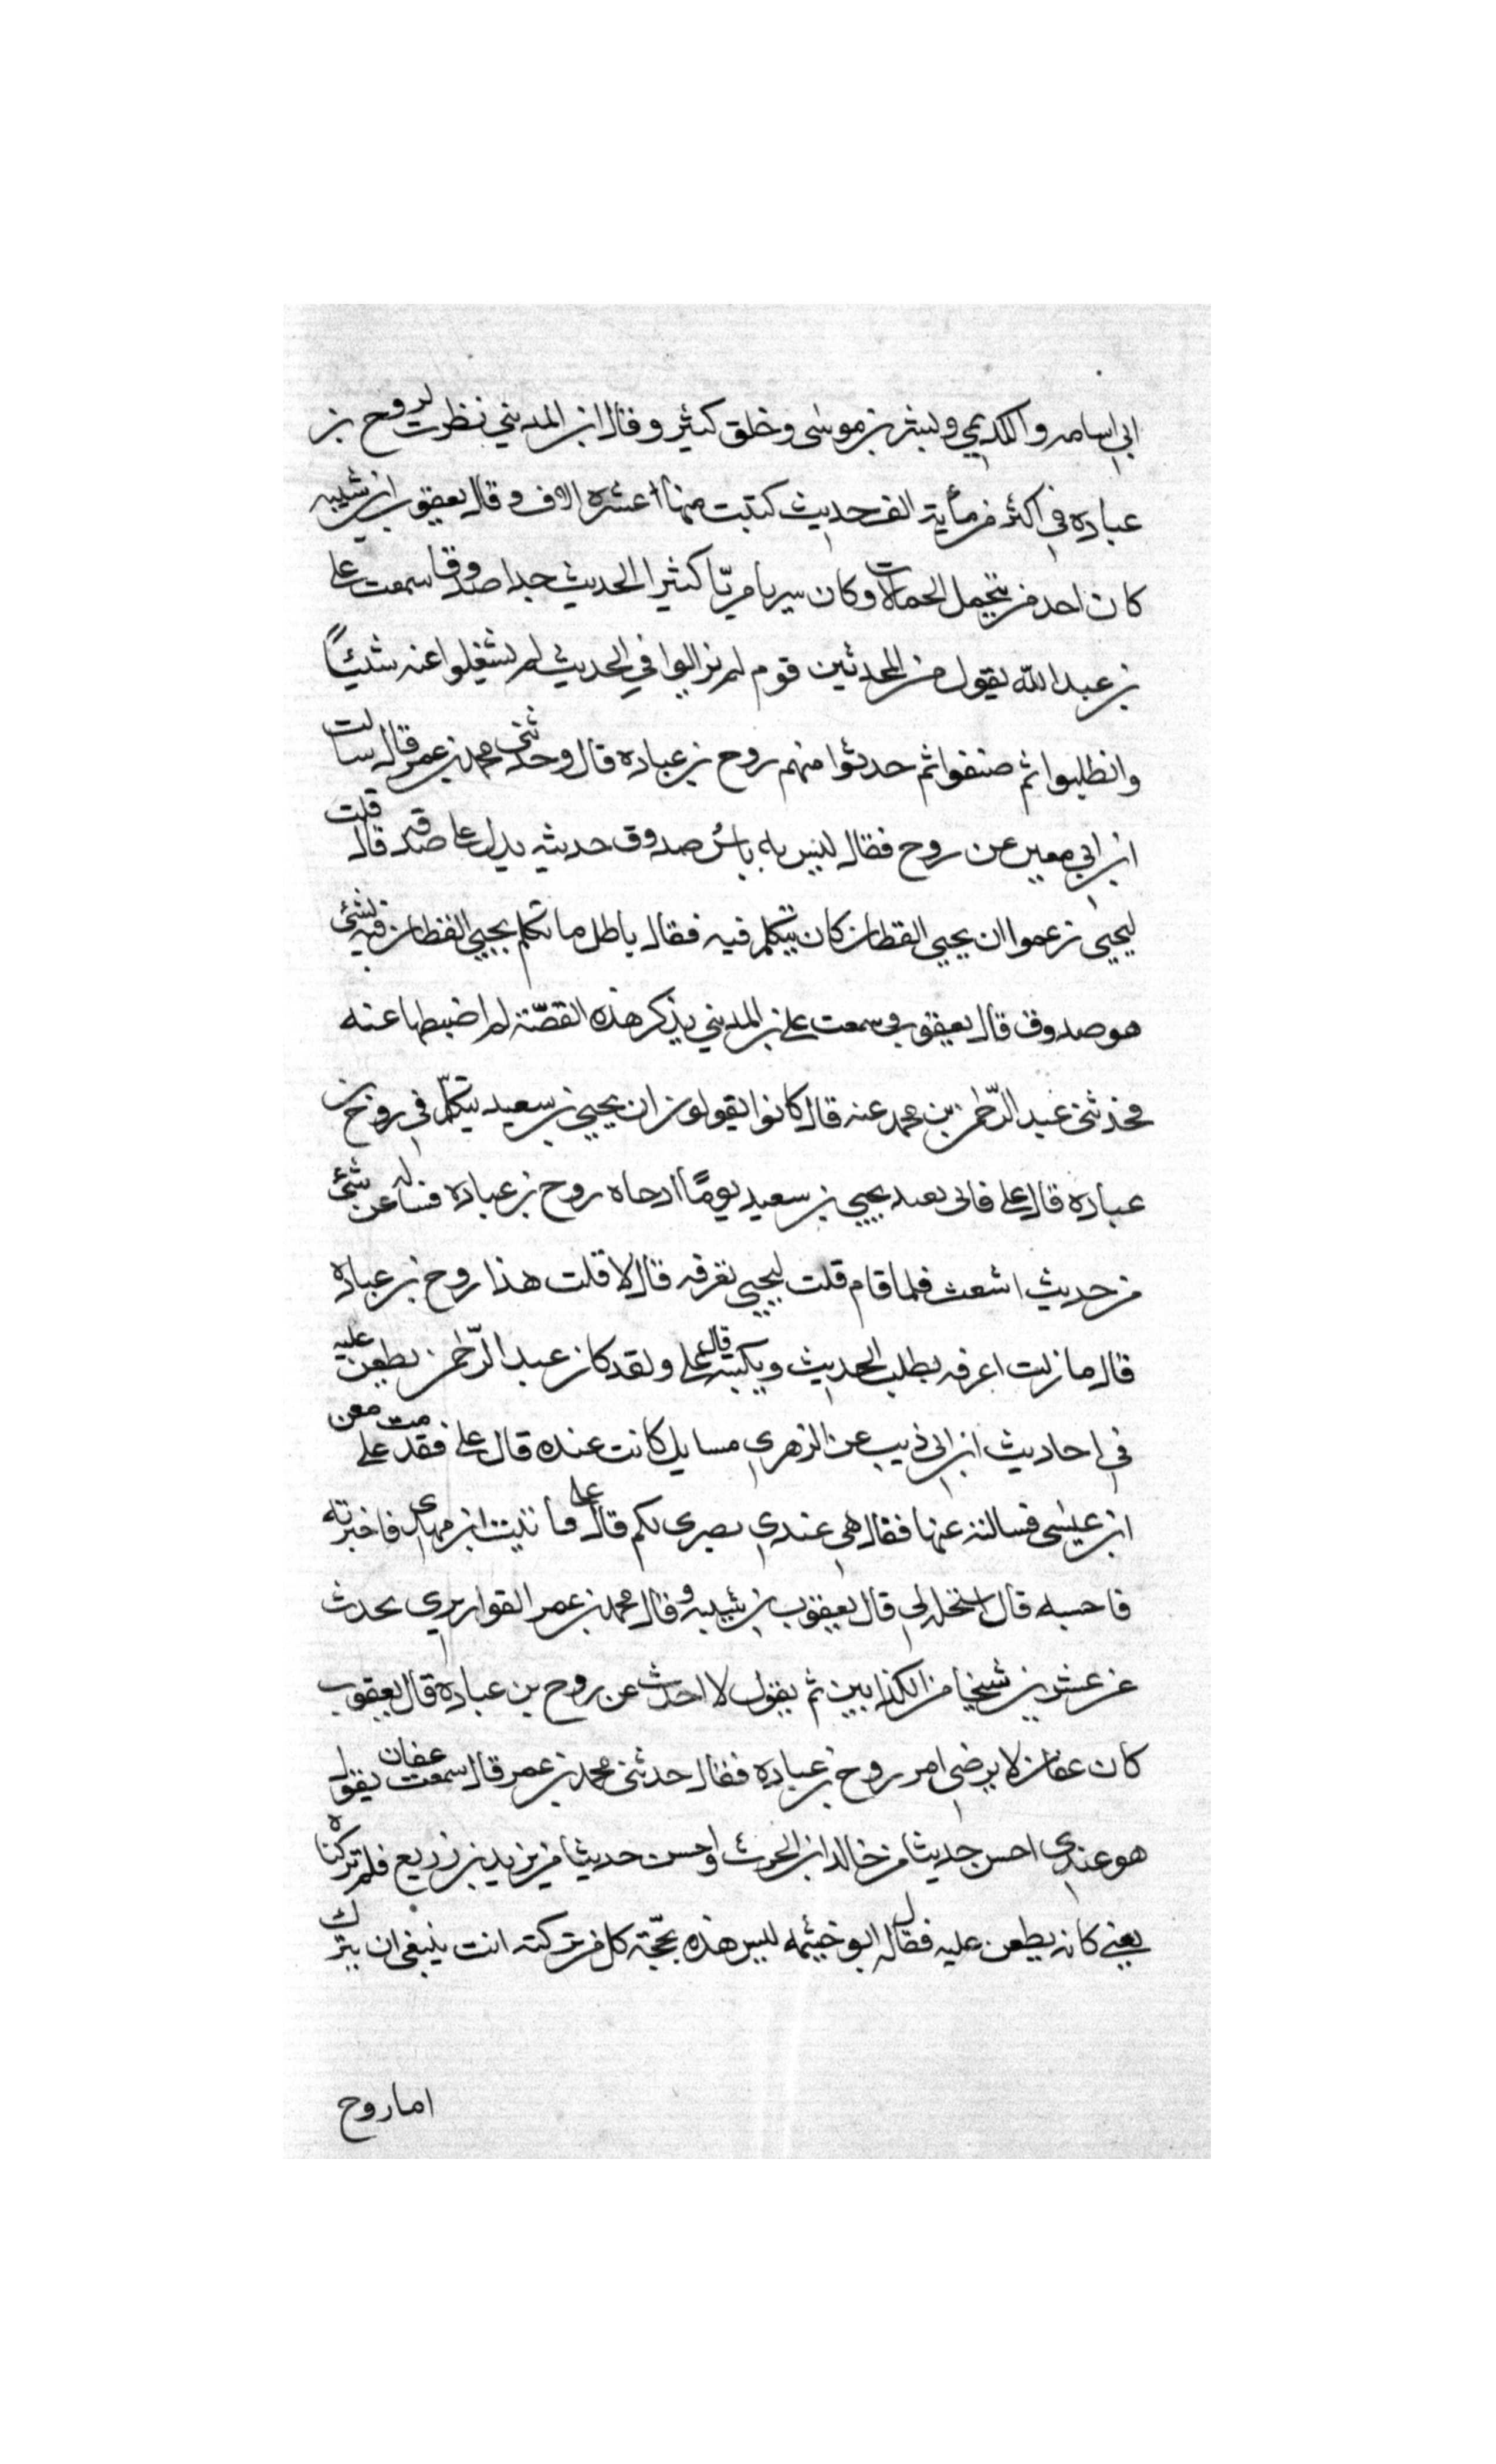 ابي اسامه والكديمي وبشر بن موسى وخلق كثير وقال ابن المديني نظرت لروح بن
عباده في اكثر من مأية الف حديث كتبت منها عشرة الاف وقال يعقوب ابن شيبه
كان احد من يتحمل الحمالات وكان سريا مريّا كثير الحديث جدا صدوقا سمعت علي
بن عبد الله يقول من المحدثين قوم لم يزالوا في الحديث لم يشغلوا عنه شيئاً
وانطلبوا ثم صنفوا ثم حدثوا منهم روح بن عباده قال وحدثني محمد بن عمر قال سالت
ابن ابي معين عن روح فقال ليس به باس صدوق حديثه يدل على صدقه قال قلت
ليحيى زعموا ان يحيى القطان كان يتكلم فيه فقال باطل ما تكلم يحيى القطان فيه بشئ
هو صدوق قال يعقوب وسمعت علي بن المديني يذكر هذه القصّة لم اضبطها عنه
فحدثني عبد الرّحمن بن محمد عنه قال كانوا يقولون ان يحيى بن سعيد يتكلّم في روح بن
عبادة قال علي فاني بعند يحيى بن سعيد يومًا اذ جاه روح بن عباده فساله عن شئ
من حديث اشعث فلما قام قلت ليحيى تعرفه قال لا قلت هذا روح بن عباده
قال ما زلت اعرفه يطلب الحديث ويكتبه قال علي ولقد كان عبد الرّحمن يطعن عليه
في احاديث ابن ابي ذيب عن الزهري مسايل كانت عنده قال علي فقدمت على معن
ابن عيسى فسالته عنها فقال هي عندي بصري لكم قال علي فاتيت ابن مهدي فاخبرته
فاحسبه قال استحله لي قال يعقوب بن شيبه وقال محمد بن عمر القواريري يحدث
عن عشرين شيخا من الكذابين ثم يقول لا احدث عن روح بن عبادة قال يعقوب
كان عفان لا يرضى امر روح بن عباده فقال حدثني محمد بن عمر قال سمعت عفان يقول
هو عندي احسن حديثا من خالد ابن الحرث واحسن حديثا من يزيد بن زريع فلم تركناه
يعني كانه يطعن عليه فقال له ابو خيثمه ليس هذه بحجّة كل من تركته انت ينبغي ان يترك
اما روح